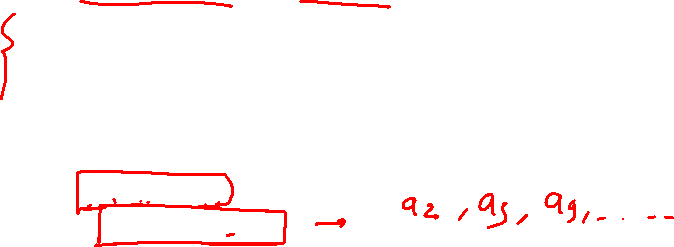 → a₂, a₅, a₉, . . . . .